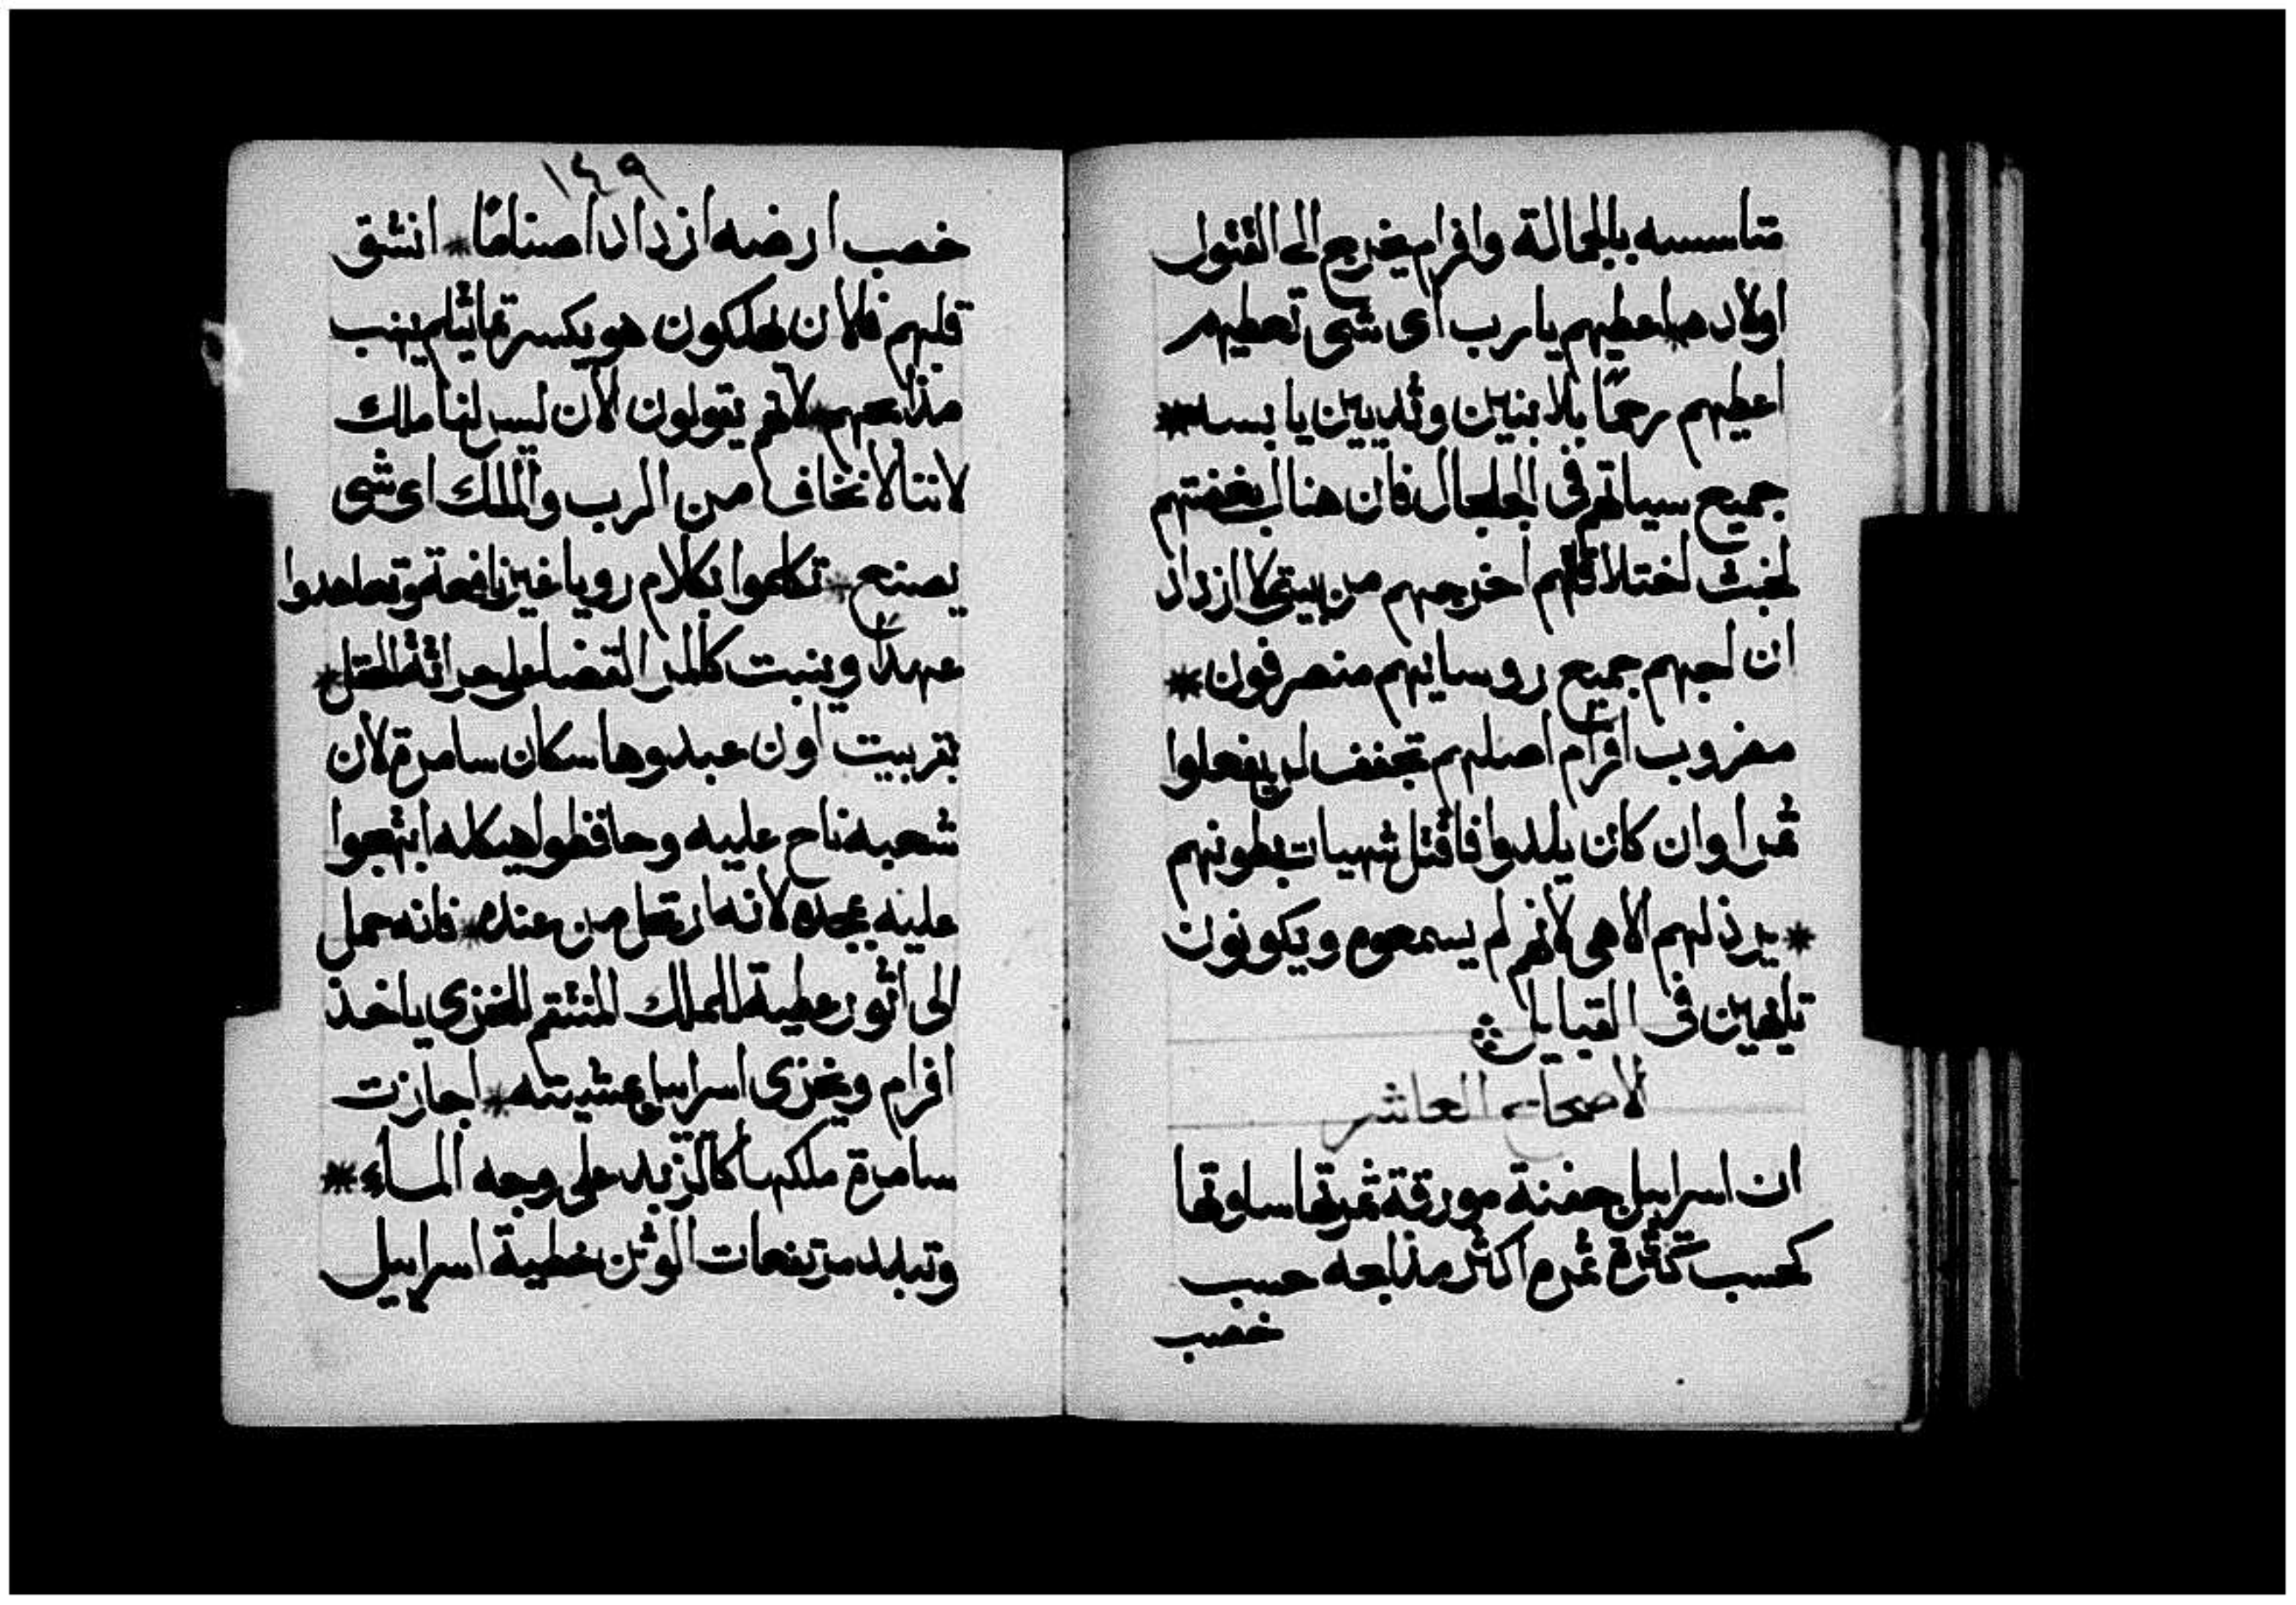 متاسسه بالجمالة وافرام يخرج الى القتول
اولاده * اعطيهم يا رب اى شى تعطيهم
اعطيهم رحمًا بلا بنين وثديين يابسه *
جميع سياتهم فى الجلجال فان هناك بغضتهم
لخبث اختلاقاتهم اخرجهم من بيتى لا ازداد
ان احبهم جميع روسايهم منصرفون *
مضروب افرام اصلهم تجفف لن يفعلوا
ثمرا وان كان يلدوا فاقتل شهيات بطونهم
* يرذلهم الاهى لانهم لم يسمعوه ويكونون
تايهين فى القبايل
الاصحاح العاشر
ان اسراييل جفنة مورقة ثمرتها ساوتها
كحسب كثرة ثمره اكثر مذابحه حسب
خصب
١٤٩
خصب ارضه ازداد اصنامًا * انشق
قلبهم فالان يهلكون هو يكسر تماثيلهم ينهب
مذابحهم * لانهم يقولون الان ليس لنا ملك
لاننا لا نخاف من الرب والملك اى شى
يصنع * تكلموا بكلام رويا غير نافعة وتعاهدوا
عهدًا وينبت كالمر القضا على حراثة الحقل *
بقر بيت اون عبدوها سكان سامرة لان
شعبه ناح عليه وحافظوا هيكله ابتهجوا
عليه بمجده لانه ارتحل من عنده * فانه حمل
الى اثور عطية للملك المنتقم الخزى ياخذ
افرام ويخزى اسراييل بمشيته * اجازت
سامرة ملكها كالزبد على وجه الماء *
وتبلد مرتفعات الوثن خطية اسراييل